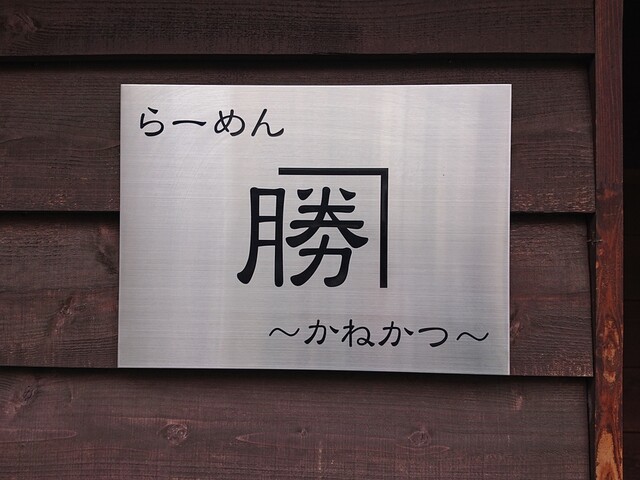 らーめん
勝
~かねかつ~